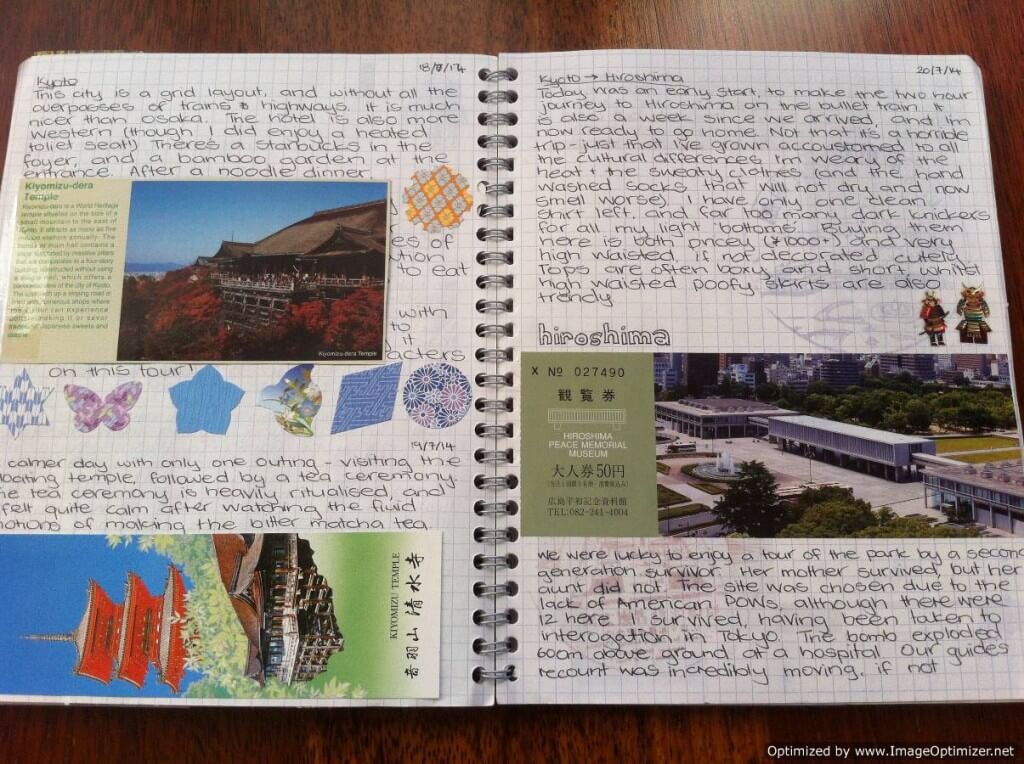 18/7/14
Kyoto
This city is a grid layout, and without all the
overpasses of trains & highways. It is much
nicer than Osaka. The hotel is also more
western (though I did enjoy a heated
toliet seat!) There's a Starbucks in the
foyer, and a bamboo garden at the
entrance. After a noodle dinner.
Kiyomizu-dera
Temple
Kiyomizu-dera is a World Heritage
temple situated on the size of a
small mountain to the east of
Kyoto. It attracts as many as five
million visitors annually. The
temple's main hall contains a
stage supported by massive pillars
that are comparable to a four-story
building constructed without using
a single nail, which offers a
panoramic view of the city of Kyoto.
Kiyomizu-dera Temple
to eat
with
to
it
on this tour!
19/7/14
calmer day with only one outing - visiting the
floating temple, followed by a tea ceremony.
The tea ceremony is heavily ritualised, and
felt quite calm after watching the fluid
motions of making the bitter matcha tea.
KIYOMIZU TEMPLE
音羽山 清水寺
20/7/14
Kyoto → Hiroshima
Today was an early start, to make the two hour
journey to Hiroshima on the bullet train. It
is also a week since we arrived, and i'm
now ready to go home. Not that it's a horrible
trip - just that I've grown accoustomed to all
the cultural differences. I'm weary of the
heat + the sweaty clothes (and the hand
washed socks that will not dry and now
smell worse). I have only one clean
shirt left, and far too many dark knickers
for all my light 'bottoms'. Buying them
here is both pricey (¥1000+) and very
high waisted, if not decorated cutely.
Tops are often boxy and short, whilst
high waisted poofy skirts are also
trendy.
hiroshima
X № 027490
観覧券
HIROSHIMA
PEACE MEMORIAL
MUSEUM
大人券50円
広島平和記念資料館
TEL:082-241-4004
We were lucky to enjoy a tour of the park by a second
generation survivor. Her mother survived, but her
aunt did not. The site was chosen due to the
lack of American POWs, although there were
12 here. 1 survived, having been taken to
interogation in Tokyo. The bomb exploded
600m above ground at a hospital. Our guides
recount was incredibly moving, if not
Optimized by www.ImageOptimizer.net